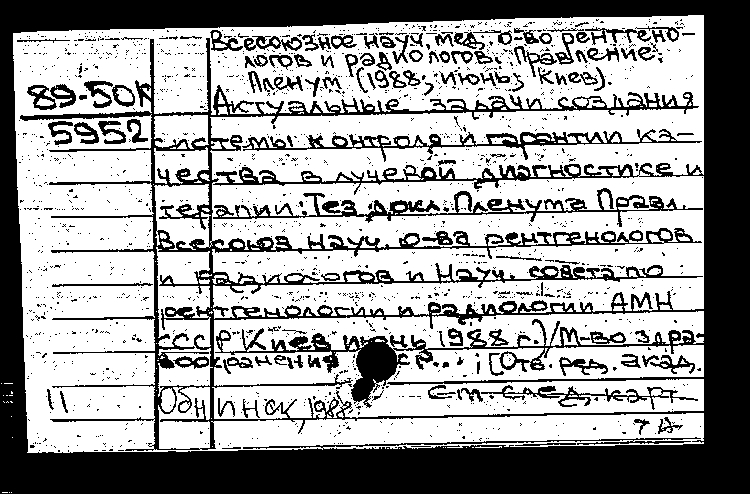 Всесоюзное науч. мед. о-во рентгено-
логов и радиологов. Правление;
Пленум (1988; июнь; Киев).
89-50К
5952
Актуальные задачи создания
системы контроля и гарантии ка-
чества в лучевой диагностике и
терапии: Тез. докл. Пленума Правл.
Всесоюз. науч. о-ва рентгенологов
и радиологов и Науч. совета по
рентгенологии и радиологии АМН
СССР Киев июнь 1988 г.)/М-во здра-
воохранения ...; [Отв. ред. акад.
11
Обнинск, 1988
см. след. карт.